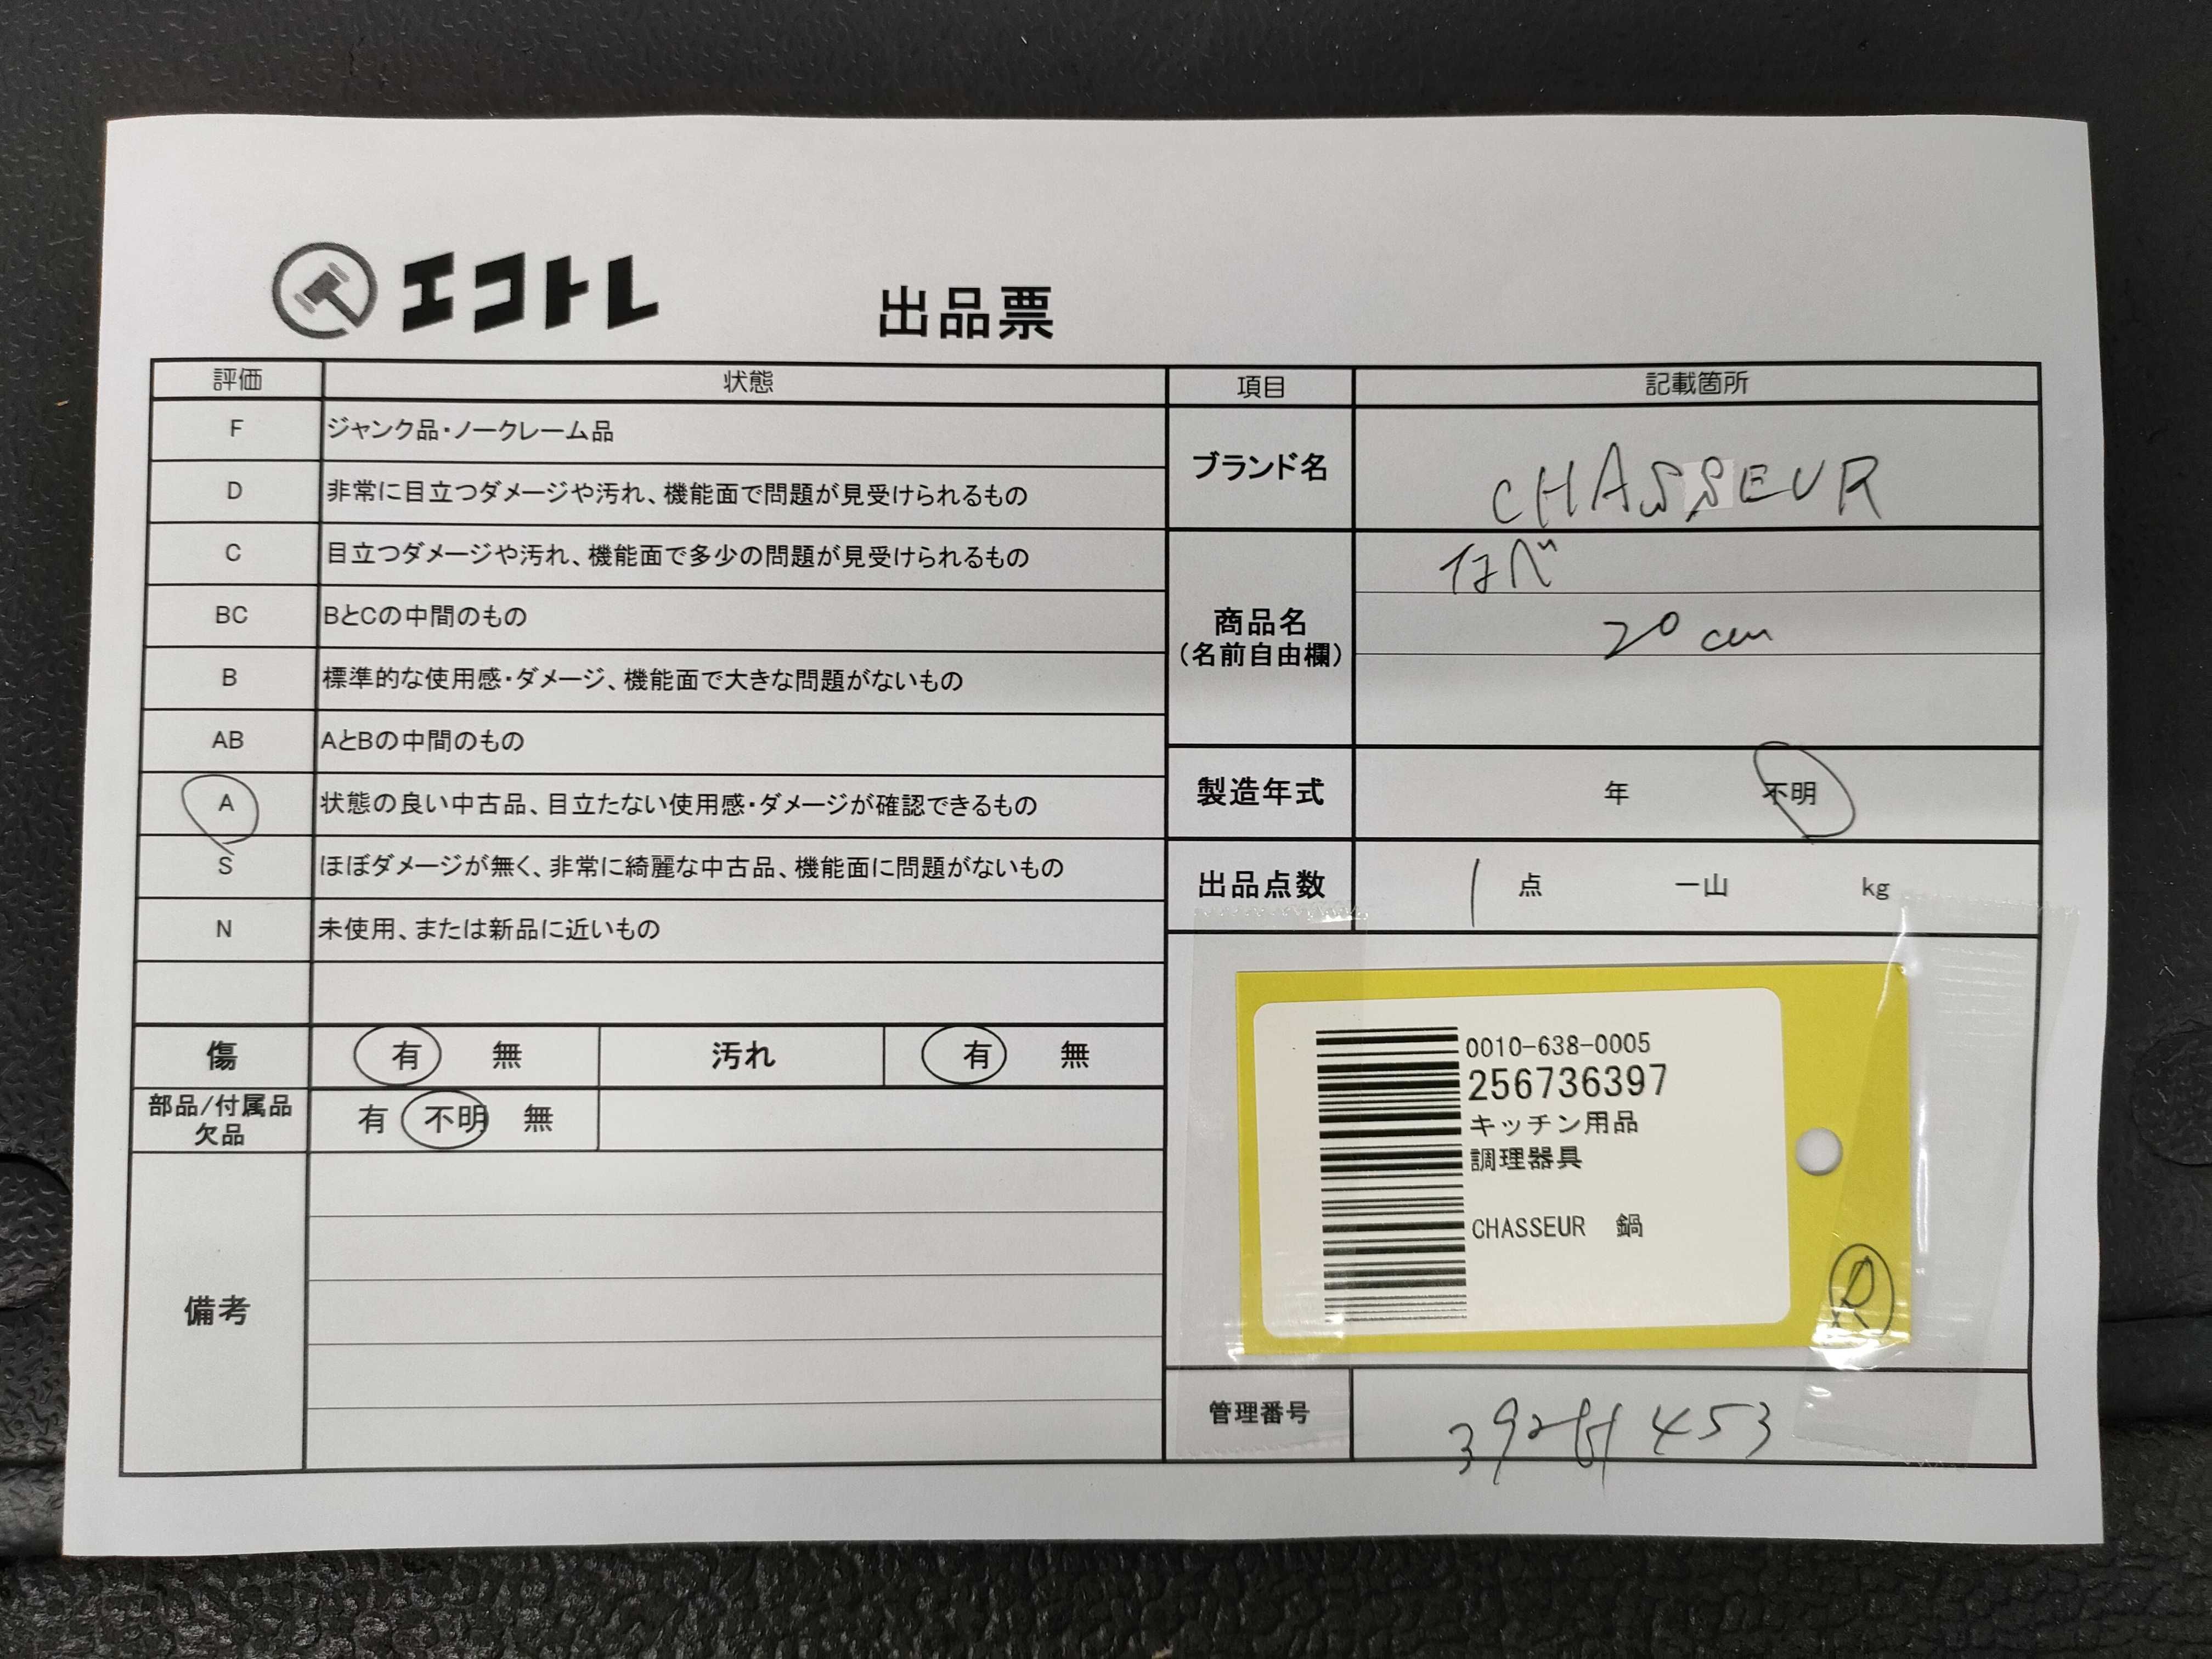 エコトレ
出品票
評価 状態
F ジャンク品・ノークレーム品
D 非常に目立つダメージや汚れ、機能面で問題が見受けられるもの
C 目立つダメージや汚れ、機能面で多少の問題が見受けられるもの
BC BとCの中間のもの
B 標準的な使用感・ダメージ、機能面で大きな問題がないもの
AB AとBの中間のもの
A 状態の良い中古品、目立たない使用感・ダメージが確認できるもの
S ほぼダメージが無く、非常に綺麗な中古品、機能面に問題がないもの
N 未使用、または新品に近いもの
傷 有 無 汚れ 有 無
部品/付属品
欠品
有 不明 無
備考
項目 記載箇所
ブランド名 CHASSEUR
商品名
(名前自由欄)
なべ
20 cm
製造年式 年 不明
出品点数 1 点 一山 kg
0010-638-0005
256736397
キッチン用品
調理器具
CHASSEUR 鍋
R
管理番号 453